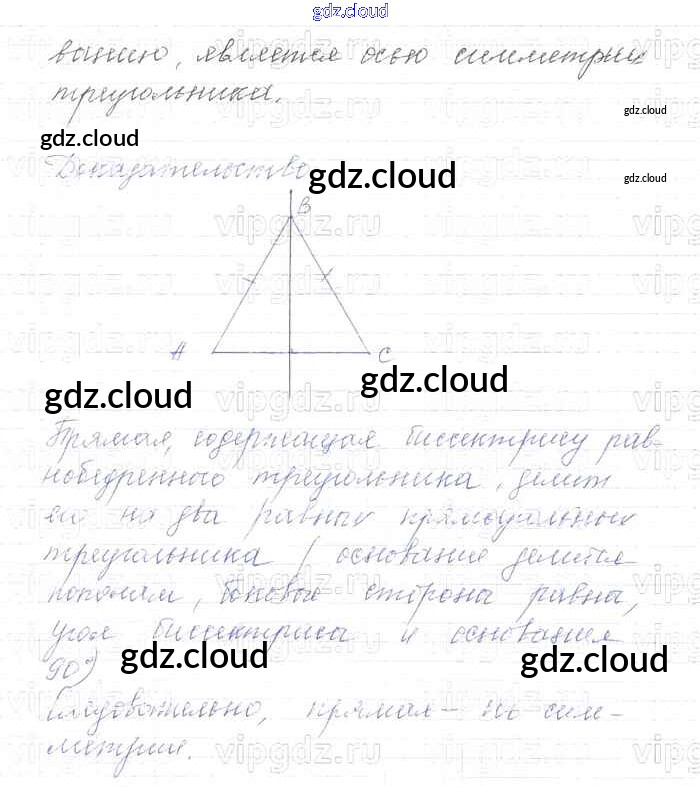 gdz.cloud
ванию, является осью симетрии
треугольника.
gdz.cloud
gdz.cloud
Доказательство
gdz.cloud
gdz.cloud
B
vipgdz.ru
A
C
gdz.cloud
gdz.cloud
Прямая, содержащая биссектрису рав-
нобедренного треугольника, делит
его на два равных прямоугольных
треугольника / основание делится
пополам, боковые стороны равны,
угол биссектриса и основания
90°)
gdz.cloud
gdz.cloud
Следовательно, прямая - ось сим-
метрии.
vipgdz.ru